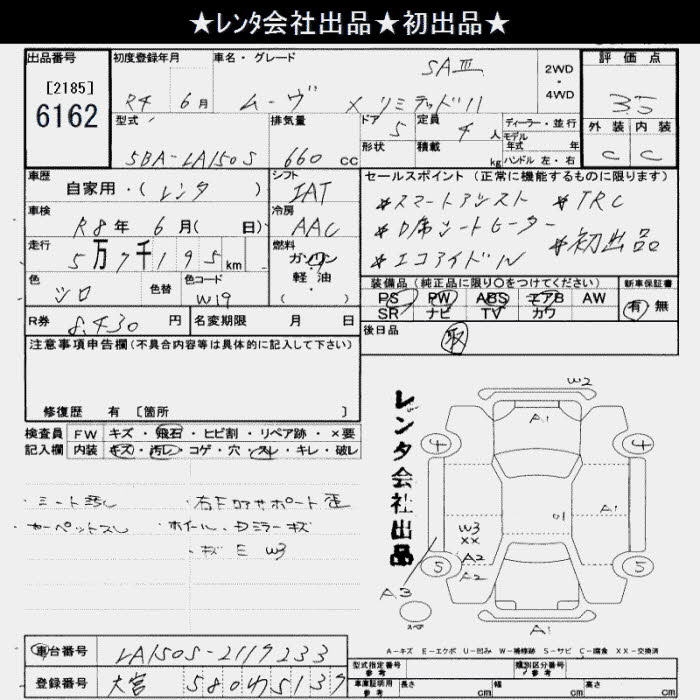 ★レンタ会社出品★初出品★
出品番号 初度登録年月 車名・グレード 評価点
[2185]
6162
R4 6月 ムーヴ X リミテッドII SAIII 2WD・4WD 3.5
型式 排気量 ドア 5 定員 4人 ディーラー・並行 外装 内装
形状 積載 kg モデル年式 年
ハンドル 左・右
5BA-LA150S 660cc C C
車歴 自家用・(レンタ) シフト IAT
セールスポイント(正常に機能するものに限ります)
*スマートアシスト *TRC
*D席シートヒーター
*エコアイドル *初出品
車検 R8年 6月( 日) 冷房 AAC
走行 5万7千195km 燃料 ガソリン・軽・油 ( )
色 シロ 色替 色コード W19
装備品(純正品に限り○をつけてください) 新車保証書
PS PW ABS エアB AW 有・無
SR ナビ TV カワ
R券 8,430円 名変期限 月 日
後日品 取
注意事項申告欄(不具合内容等は具体的に記入して下さい)
修復歴 有 [箇所 ]
検査員 FW キズ・飛石・ヒビ割・リペア跡・×要
記入欄 内装 キズ・汚レ・コゲ・穴・スレ・キレ・破レ
・シート汚レ ・右Fロアサポート歪
・カーペットスレ ・ホイール・Dミラーキズ
・キズ E W3
レンタ会社出品
W2
A1
4 4
W3 XX
A2
A2
U1
A1
5 5
A3
スペア
A1
A-キズ E-エクボ U-凹み W-補修跡 S-サビ C-腐食 XX-交換済
車台番号 LA150S-2119233
登録番号 大宮 580わ5139
型式指定番号 参考 類別区分番号 参考
車庫証明用 参考 長さ cm 幅 cm 高さ cm